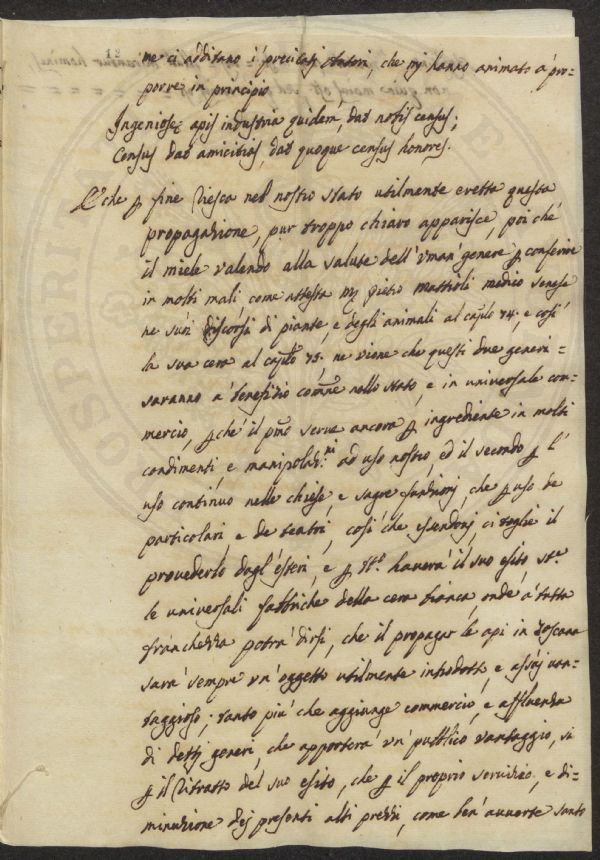 12
ne ci additano i precitati Autori, che mi hanno animato à pro=
porre in principio
Ingeniosę apis industria quidem, dat notis census;
Census dat amicitias, dat quoque census honores.
E che ꝑ fine riesca nel nostro stato utilmente eretta questa
propagazione, pur troppo chiaro apparisce, poi ché
il miele valendo alla salute dell'uman'genere ꝑ conferire
in molti mali come attesta Pietro Mattioli medico senese
ne suoi discorsi di piante, e degli animali al capitolo 74, e così
la sua cera al capitolo 75. ne viene che questi due generi=
saranno à benefizio comne nello stato, e in universale com=
mercio, ꝑche' il pmo serve ancora ꝑ ingrediente in molti
condimenti e manipolazni ad uso nostro, ed il secondo ꝑ l'
uso continuo nelle chiese, e sagre funzioni, che ꝑ uso de
particolari, e de teatri, così che essendovi, ci toglie il
provederlo dagl'esteri, e ꝑ havera' il suo esito
le universali fabbriche della cera bianca, onde à tutta
franchezza potra' dirsi, che il propagar le api in Toscana
sara' sempre un'oggetto utilmente introdotto, e assaj van=
taggioso; tanto più che aggiunge commercio, e affluenza
di detti generi, che apportera' un' pubblico vantaggio, si
ꝑ il ritratto del suo esito, che ꝑ il proprio servizio, e di=
minuzione dej presenti alti prezzi, come ben' avverte tanto